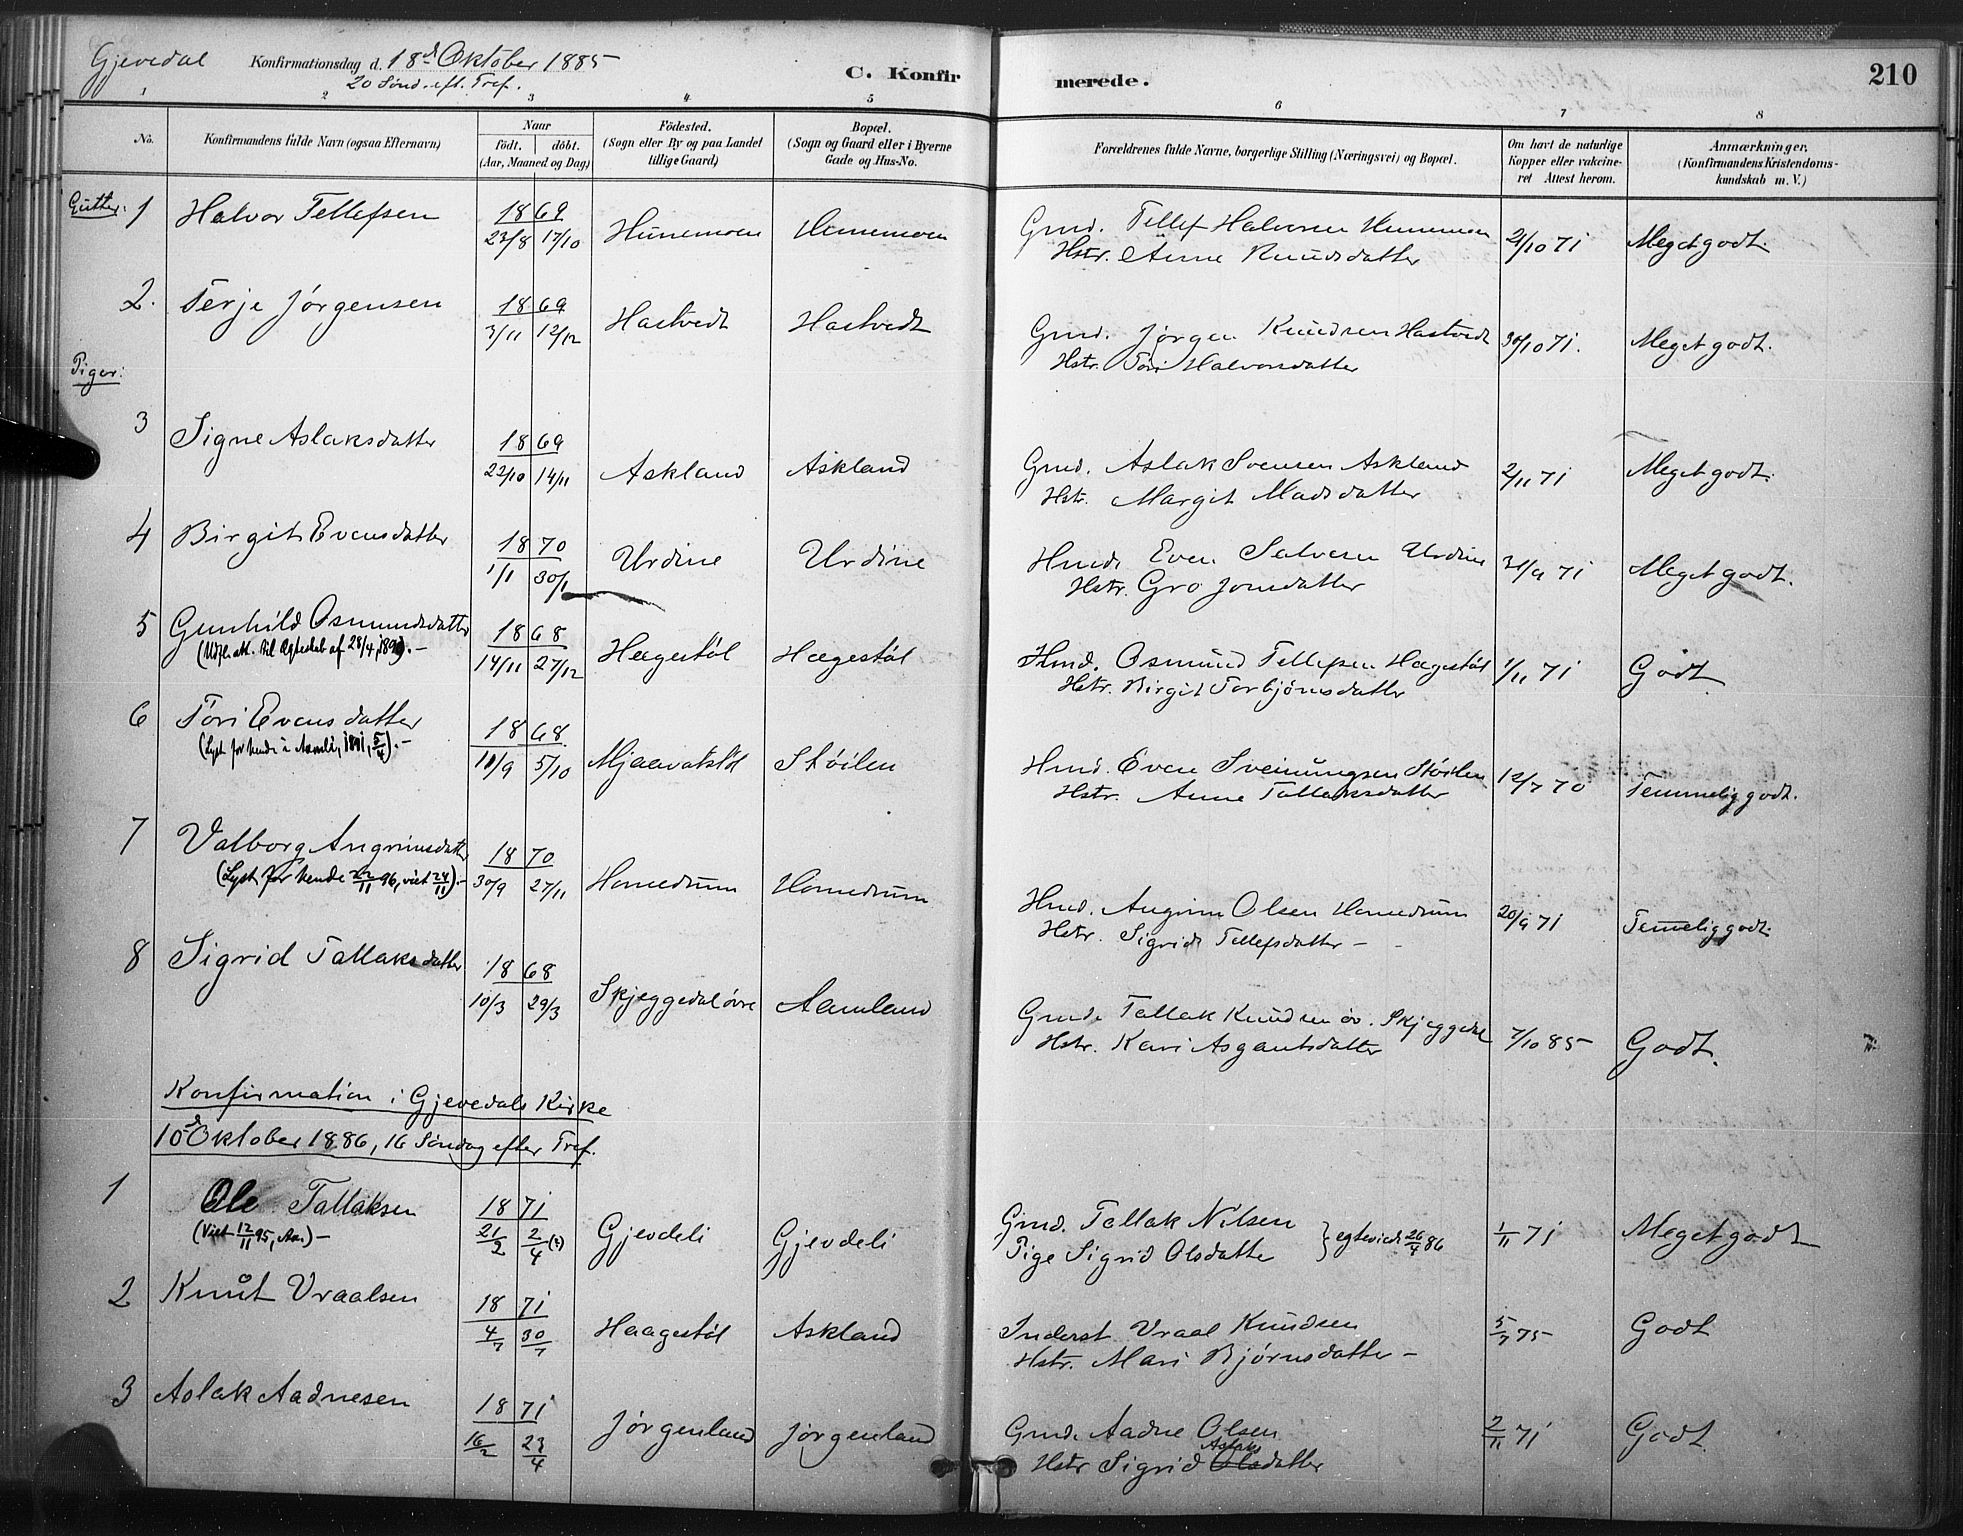 Gjevedal Konfirmationsdag d. 18d Oktober 1885
20 Sønd. eft. Tref.
C. Konfirmerede.
210
1 2 3 4 5 6 7 8
No.
Konfirmandens fulde Navn (ogsaa Efternavn)
Naar
født. døbt.
(Aar, Maaned og Dag)
Fødested.
(Sogn eller By og paa Landet
tillige Gaard)
Bopæl.
(Sogn og Gaard eller i Byerne
Gade og Hus-No.
Forældrenes fulde Navne, borgerlige Stilling (Næringsvei) og Bopæl.
Om havt de naturlige
Kopper eller vakcine-
ret Attest herom.
Anmærkninger,
(Konfirmandens Kristendoms-
kundskab m. V.)
Gutter:
1 Halvor Tellefsen 1869 23/8 17/10 Hunemoen Hunemoen
Gmd. Tellef Halvorsen Hunemoen 21/10 71 Meget godt.
Hstr. Anne Knudsdatter
2. Terje Jørgensen 1869 3/11 12/12 Hastvedt Hastvedt
Gmd. Jørgen Knudsen Hastvedt 30/10 71. Meget godt.
Hstr. Tøri Halvorsdatter
Piger:
3 Signe Aslaksdatter 1869 22/10 14/11 Askland Askland
Gmd. Aslak Svensen Askland 2/11 71 Meget godt.
Hstr. Margit Madsdatter
4 Birgit Evensdatter 1870 1/1 30/1 Urdine Urdine
Hmd. Even Salvesen Urdine 31/9 71 Meget godt.
Hstr. Gro Jonsdatter
5 Gunhild Osmundsdatter 1868 14/11 27/12 Hægestøl Hægestøl
(Udfl. att. til Ægteskab af 28/4, 1890). -
Hmd. Osmund Tellefsen Hægestøl 1/11 71 Godt
Hstr. Birgit Torbjønsdatter
6 Tøri Evensdatter 1868 11/9 5/10 Mjaavatstøl Støilen
(Lyst for hende i Aamli, 1891, 5/4). -
Hmd. Even Sveinungsen Støilen 12/7 70 Temmelig godt.
Hstr. Anne Tallaksdatter
7 Valborg Angrimsdatter 1870 30/9 27/11 Homdrum Homdrum
(Lyst for hende 22/11 96, viet 24/11). -
Hmd. Angrim Olsen Homdrum 20/9 71 Temelig godt.
Hstr. Sigrid Tellefsdatter -
8 Sigrid Tallaksdatter 1868 10/3 29/3 Skjeggedal øvre Aamland
Gmd. Tallak Knudsen øv. Skjeggedal 7/10 85 Godt.
Hstr. Kari Asgautsdatter
Konfirmation i Gjevedals Kirke
10d Oktober 1886, 16 Søndag efter Tref.
1 Ole Tallaksen 1871 21/2 2/4 (?) Gjevdeli Gjevdeli
(Viet 12/11 95, Aa.) -
Gmd. Tallak Nilsen } egteviet 26/4 86 1/11 71 Meget godt
Pige Sigrid Olsdatter
2 Knut Vraalsen 1871 4/7 30/7 Haagestøl Askland
Inderst Vraal Knudsen 5/7 75 Godt
Hstr. Mari Bjørnsdatter -
3 Aslak Aadnesen 1871 16/2 23/4 Jørgenland Jørgenland
Gmd. Aadne Olsen 2/11 71 Godt
Aslaks
Hstr Sigrid Olsdatter